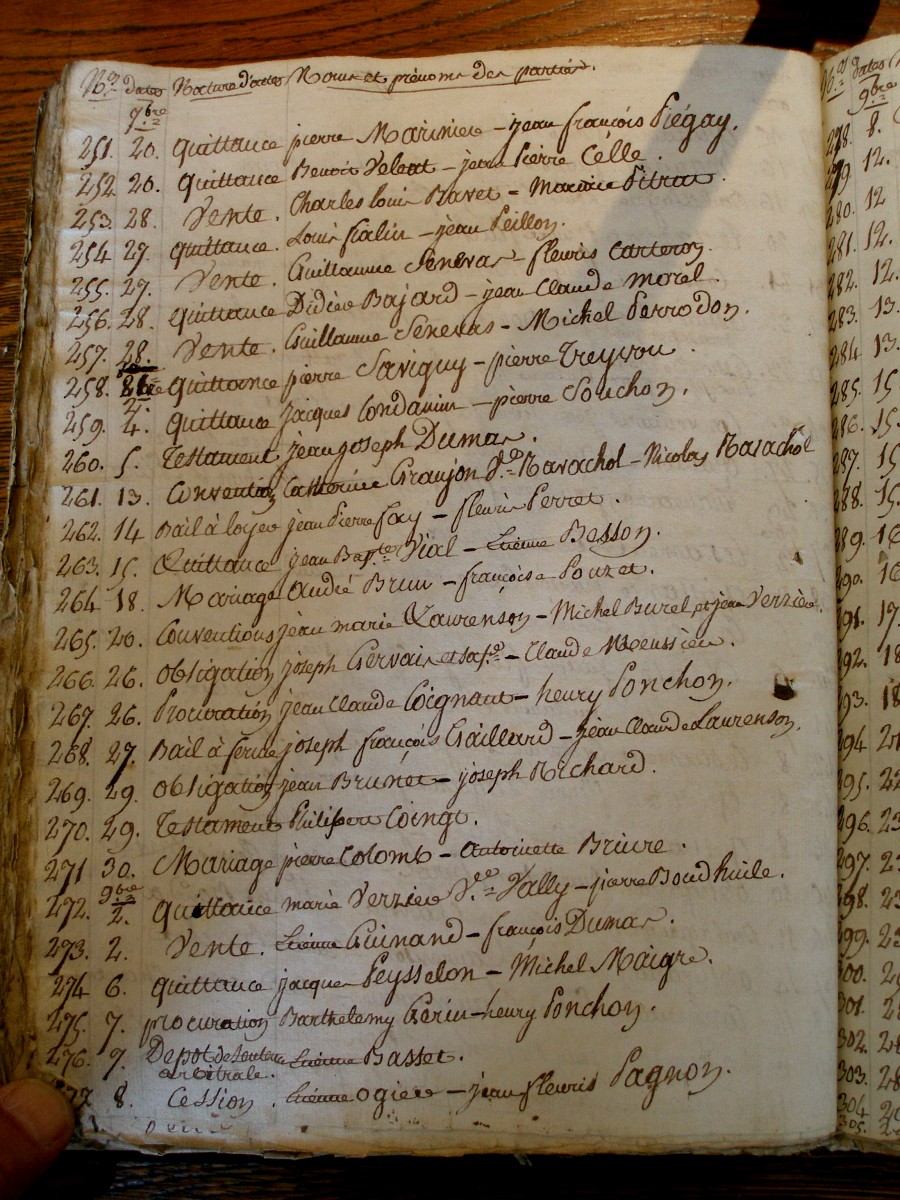 Nos dates Nature d'actes Noms et prénoms des parties.
9bre
251. 20. quittance pierre Marinier - jean françois Piégay.
252 26. quittance Benoit Veleat - jean Pierre Celle.
253. 28. Vente. Charles louis Bavet - Maurice Pitrat.
254 27. quittance. Louis Palin - jean Peillon.
255. 27. Vente. Guillaume Senevas - fleuris Carteron.
256. 28. quittance Didier Bajard - jean Claude morel.
257. 28. Vente. Guillaume Senevas - Michel Perrodon.
258. quittance pierre Savigny - pierre Treyvou.
2.
259. 4. quittance jacques Condamin - pierre Souchon.
260. 5. Testament jean joseph Dumas.
261. 13. Convention Catherine Granjon Ve. Ravachol - Nicolas Ravachol
262. 14 Bail à loyer jean Pierre fay - fleuris Perret.
263. 15. Quittance jean Bapte. Vial - Etienne Besson.
264 18. Mariage André Brun - françoise Pouzet.
265. 20. Conventions jean marie Laurenson - Michel Burel et jean Verzier.
266. 26. obligation joseph Gervais et sa fe. - Claude Meussier.
267. 26. Procuration jean Claude Coignant - henry Ponchon.
268. 27. Bail à ferme joseph françois Gaillard - jean Claude Laurenson.
269. 29. obligation jean Brunet - joseph Richard.
270. 29. Testament Philiperre Coingt.
271 30. Mariage pierre Colomb - Antoinette Briere.
9bre
272. 2. Quittance marie Verzier Vee. Vally - pierre Boudhuile.
273. 2. Vente. Etienne Guinand - françois Dumas.
274 6. quittance jacques Peysselon - Michel Maigre.
275. 7. procuration Barthelemy Gerin - henry Ponchon.
276. 7. Depot de Sentence Etienne Basset.
arbitrale.
277 8. Cession. Etienne Ogier - jean fleuris Pagnon.
Nos dates
9bre
278. 8.
279 12.
280. 12
281. 12.
282. 12.
283. 13.
284 13.
285. 15
286. 15.
287. 15
288. 15.
289. 16
290. 16
291. 17.
292. 18
293. 18
294
295. 22
296. 23
297. 23
298. 23
299. 23
300.
301.
302.
303. 28
304
305.